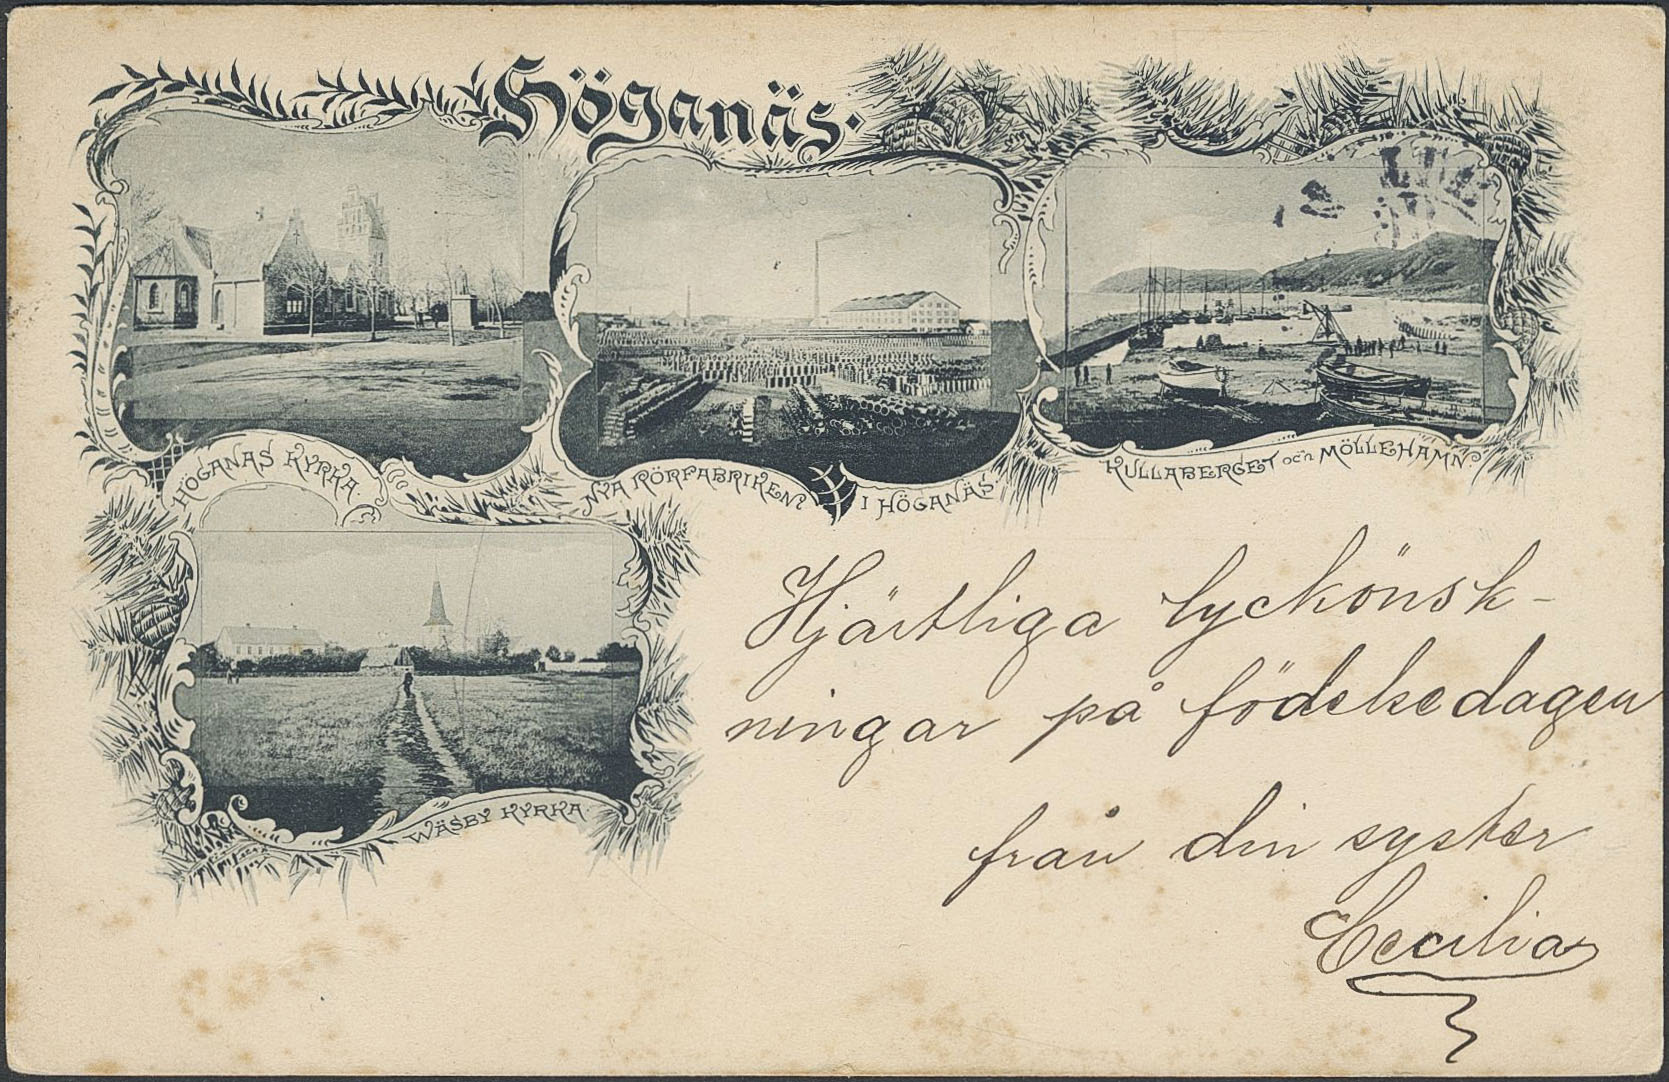 Höganäs.
HÖGANÄS KYRKA.
NYA RÖRFABRIKEN I HÖGANÄS.
KULLABERGET och MÖLLEHAMN.
WÄSBY KYRKA.
Hjärtliga lyckönsk-
ningar på födelsedagen
från din syster
Cecilia